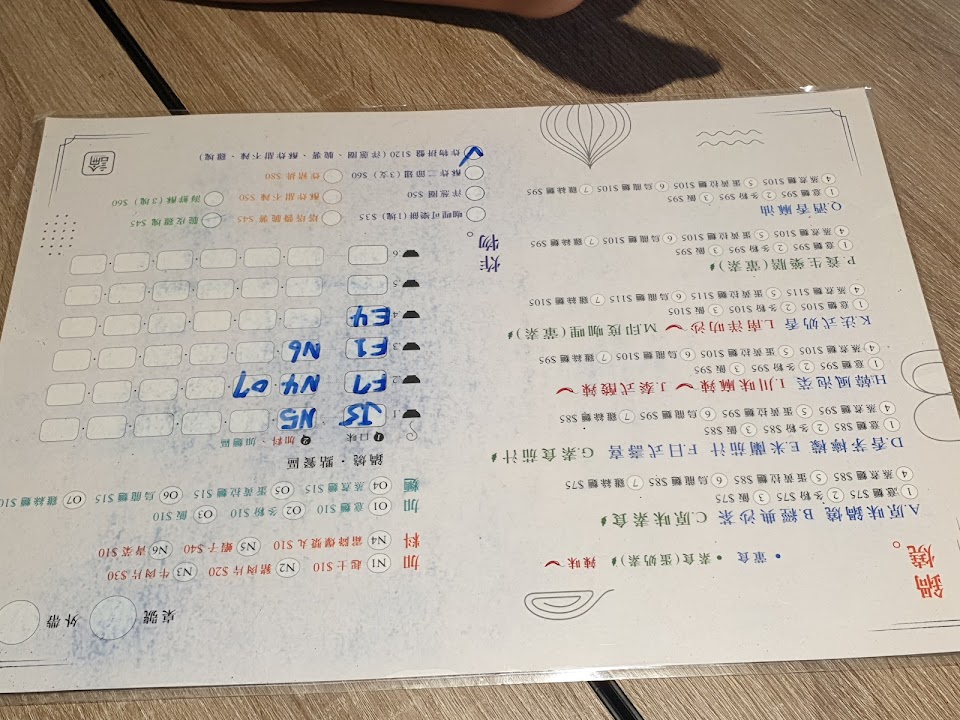 鍋燒。
• 葷食 • 素食(蛋奶素) 辣味
A.原味鍋燒 B.經典沙茶 C.原味素食
1 意麵 $75 2 冬粉 $75 3 飯 $75
4 蒸煮麵 $85 5 蛋黃拉麵 $85 6 烏龍麵 $85 7 雞絲麵 $75
D.香茅檸檬 E.米蘭茄汁 F.日式壽喜 G.素食茄汁
1 意麵 $85 2 冬粉 $85 3 飯 $85
4 蒸煮麵 $95 5 蛋黃拉麵 $95 6 烏龍麵 $95 7 雞絲麵 $85
H.韓風泡菜 I.川味麻辣 J.泰式酸辣
1 意麵 $95 2 冬粉 $95 3 飯 $95
4 蒸煮麵 $105 5 蛋黃拉麵 $105 6 烏龍麵 $105 7 雞絲麵 $95
K.法式奶香 L.南洋叻沙 M.印度咖哩(葷素)
1 意麵 $105 2 冬粉 $105 3 飯 $105
4 蒸煮麵 $115 5 蛋黃拉麵 $115 6 烏龍麵 $115 7 雞絲麵 $105
P.養生藥膳(葷素)
1 意麵 $95 2 冬粉 $95 3 飯 $95
4 蒸煮麵 $105 5 蛋黃拉麵 $105 6 烏龍麵 $105 7 雞絲麵 $95
Q.酒香麻油
1 意麵 $95 2 冬粉 $95 3 飯 $95
4 蒸煮麵 $105 5 蛋黃拉麵 $105 6 烏龍麵 $105 7 雞絲麵 $95
桌號 外帶
加料
N1 起士 $10 N2 豬肉片 $20 N3 牛肉片 $30
N4 霜降爆漿丸 $10 N5 蝦子 $40 N6 青菜 $10
加麵
O1 意麵 $10 O2 冬粉 $10 O3 飯 $10
O4 蒸煮麵 $15 O5 蛋黃拉麵 $15 O6 烏龍麵 $15 O7 雞絲麵 $10
鍋燒・點餐區
1 口味 2 加料、加麵區
1 J5 N5
2 F7 N4 O7
3 F1 N6
4 E4
5
6
炸物。
咖哩可樂餅(1塊) $35 塔塔醬脆薯 $45 脆皮雞塊 $45
洋蔥圈 $50 酥炸甜不辣 $50 海鮮酥(3塊) $60
酥炸二節翅(3支) $60 炸豬排 $80
炸物拼盤 $120(洋蔥圈、脆薯、酥炸甜不辣、雞塊)